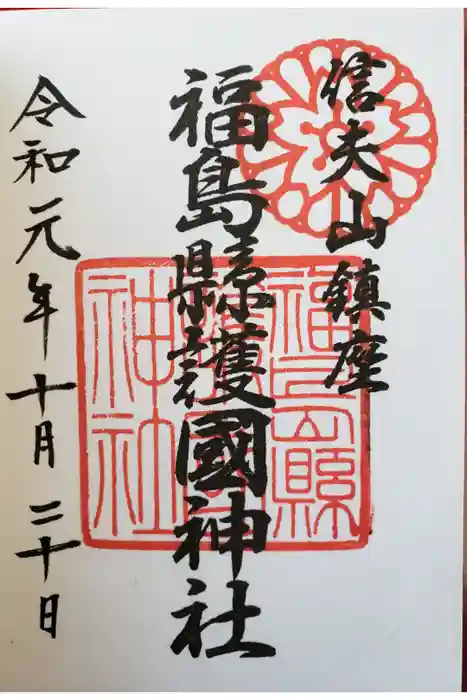 信夫山鎮座
福島縣護國神社
令和元年十月二十日
福島縣護國神社